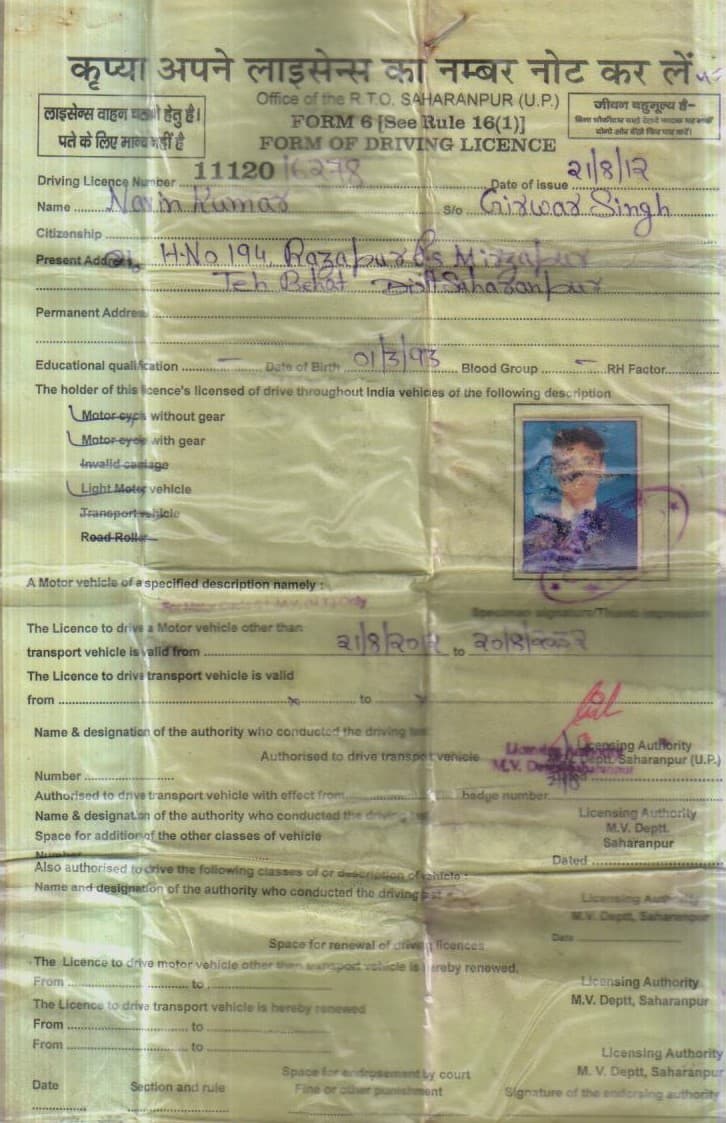 कृप्या अपने लाइसेन्स का नम्बर नोट कर लें
लाइसेन्स वाहन चलाने हेतु है।
पते के लिए मान्य नहीं है
Office of the R.T.O. SAHARANPUR (U.P.)
FORM 6 [See Rule 16(1)]
FORM OF DRIVING LICENCE
जीवन बहुमूल्य है-
Driving Licence Number 11120/16278 Date of issue 21/8/12
Name Navin Kumar S/o Girwar Singh
Citizenship
Present Address H.No 194, Razapur Ps Mirzapur
Teh Behat Distt Saharanpur
Permanent Address
Educational qualification — Date of Birth 01/3/93 Blood Group — RH Factor
The holder of this licence's licensed of drive throughout India vehicles of the following description
Motor cycle without gear
Motor cycle with gear
Invalid carriage
Light Motor vehicle
Transport vehicle
Road Roller
A Motor vehicle of a specified description namely :
Specimen signature/Thumb impression
The Licence to drive a Motor vehicle other than
transport vehicle is valid from 21/8/2012 to 20/8/2032
The Licence to drive transport vehicle is valid
from x to x
Name & designation of the authority who conducted the driving test
Authorised to drive transport vehicle
Licensing Authority
M.V. Deptt. Saharanpur (U.P.)
Number
Authorised to drive transport vehicle with effect from badge number
Name & designation of the authority who conducted the driving test
Licensing Authority
M.V. Deptt.
Saharanpur
Space for addition of the other classes of vehicle
Number
Dated
Also authorised to drive the following classes of or description of vehicle :
Name and designation of the authority who conducted the driving test
Licensing Authority
M.V. Deptt, Saharanpur
Date
Space for renewal of driving licences
The Licence to drive motor vehicle other then transport vehicle is hereby renewed.
From to
Licensing Authority
M.V. Deptt, Saharanpur
The Licence to drive transport vehicle is hereby renewed
From to
From to
Licensing Authority
M. V. Deptt, Saharanpur
Space for endrosement by court
Date Section and rule Fine or other punishment Signature of the endorsing authority